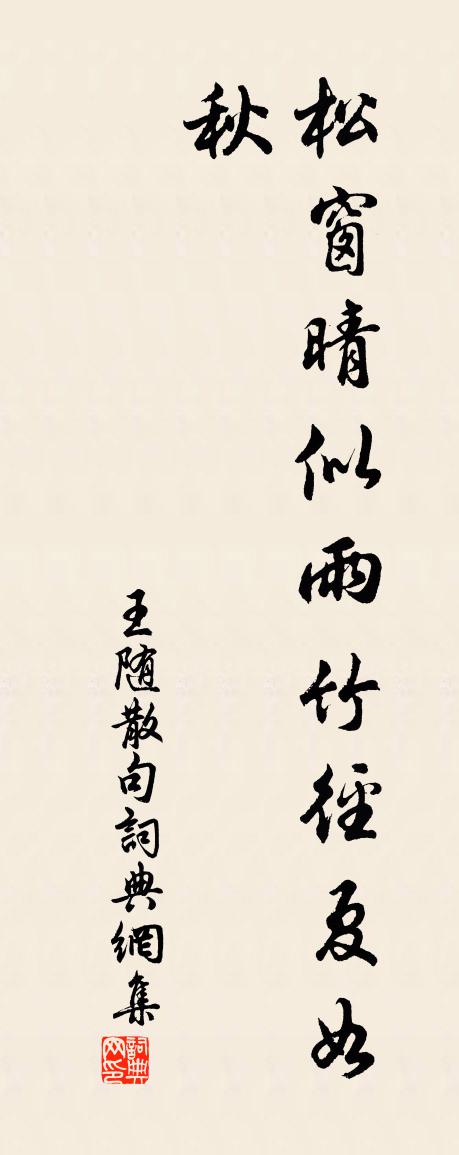 松窗晴似雨竹徑夏如
秋
王随散句詞典網集
詞典网印